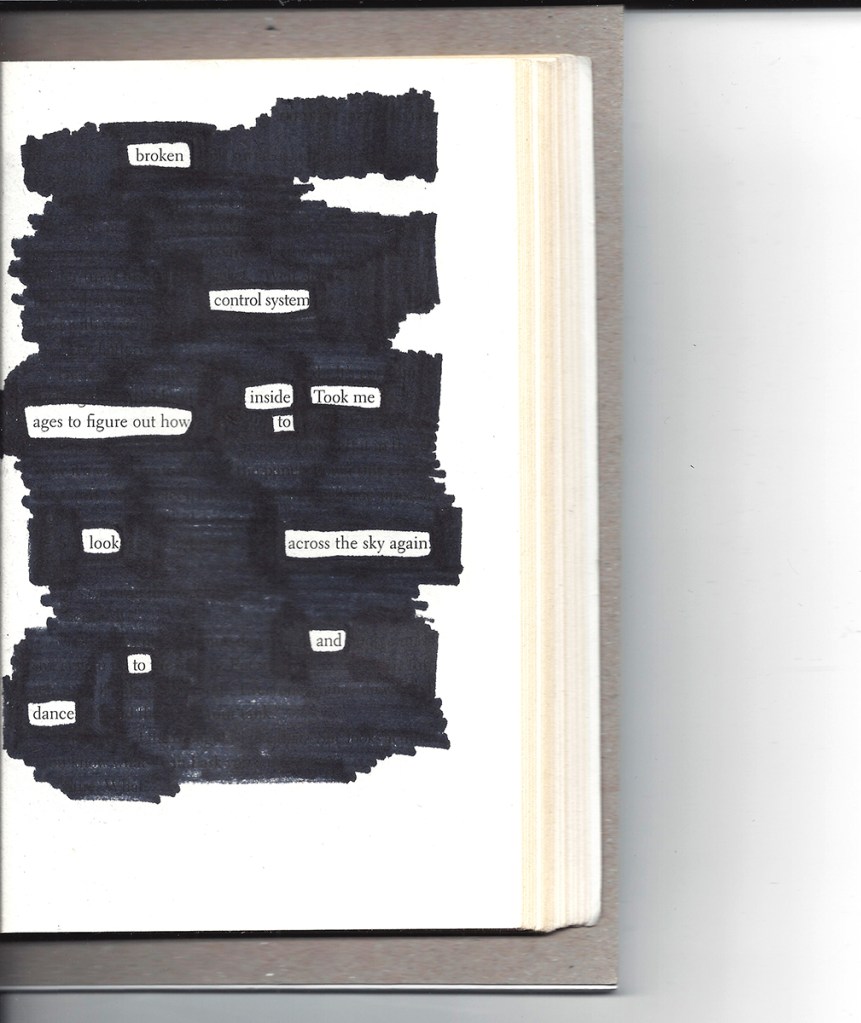 broken
control system
inside Took me
ages to figure out how to
look across the sky again
and
to
dance